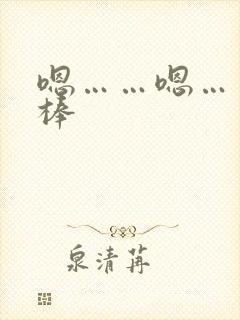 嗯... ...嗯...
棒
泉清苒